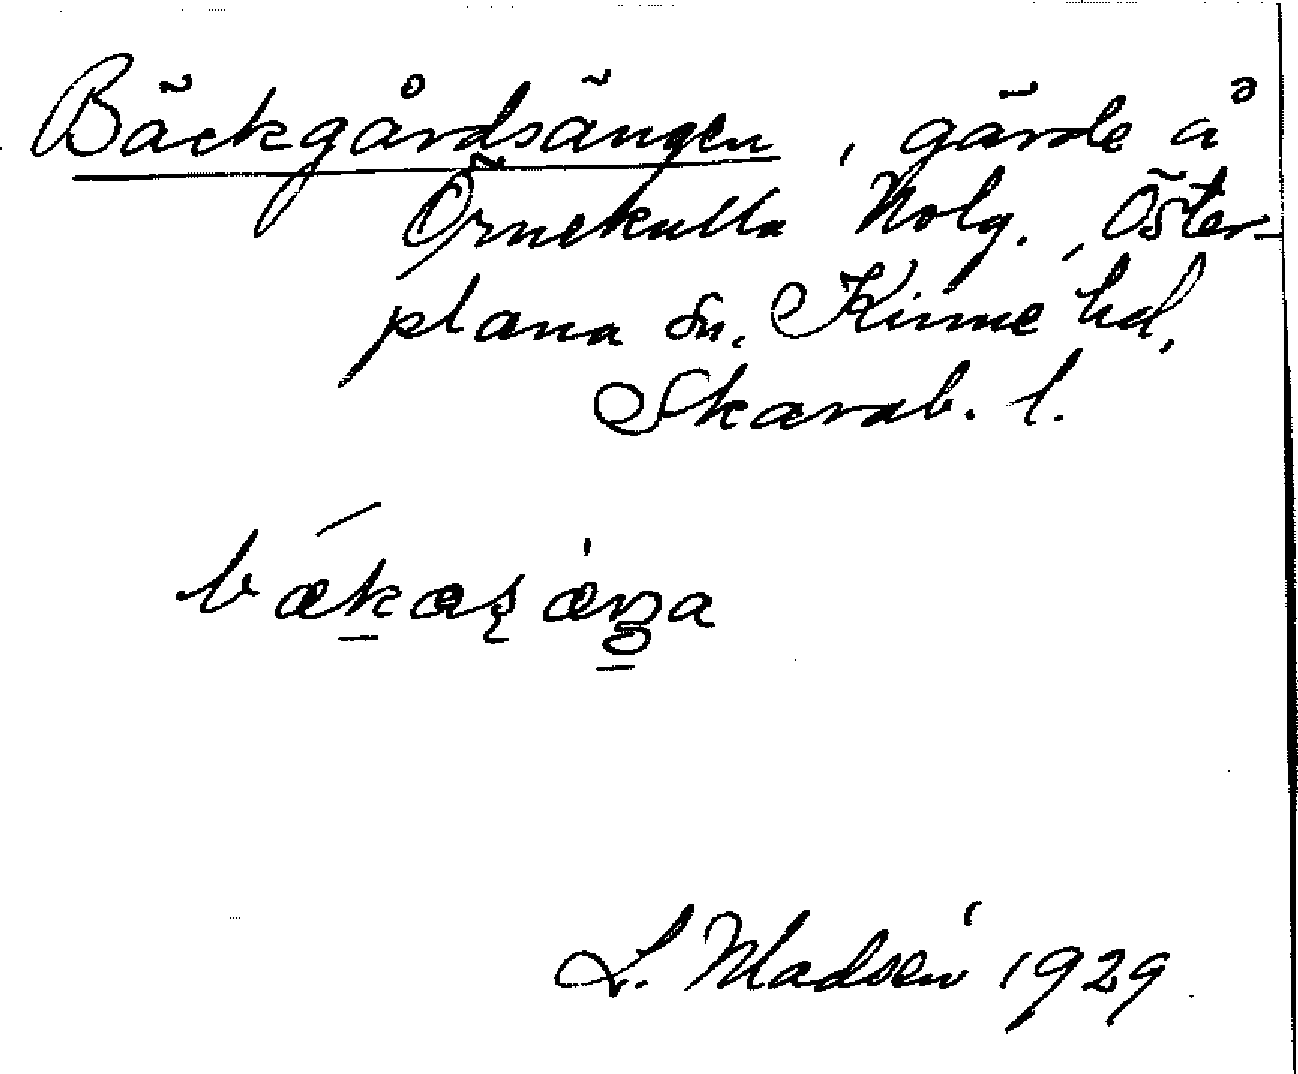 Bäckgårdsängen, gärde å
Örnekulla Nolg., Öster-
plana sn. Kinne hd,
Skarab. l.
L. Madsén 1929